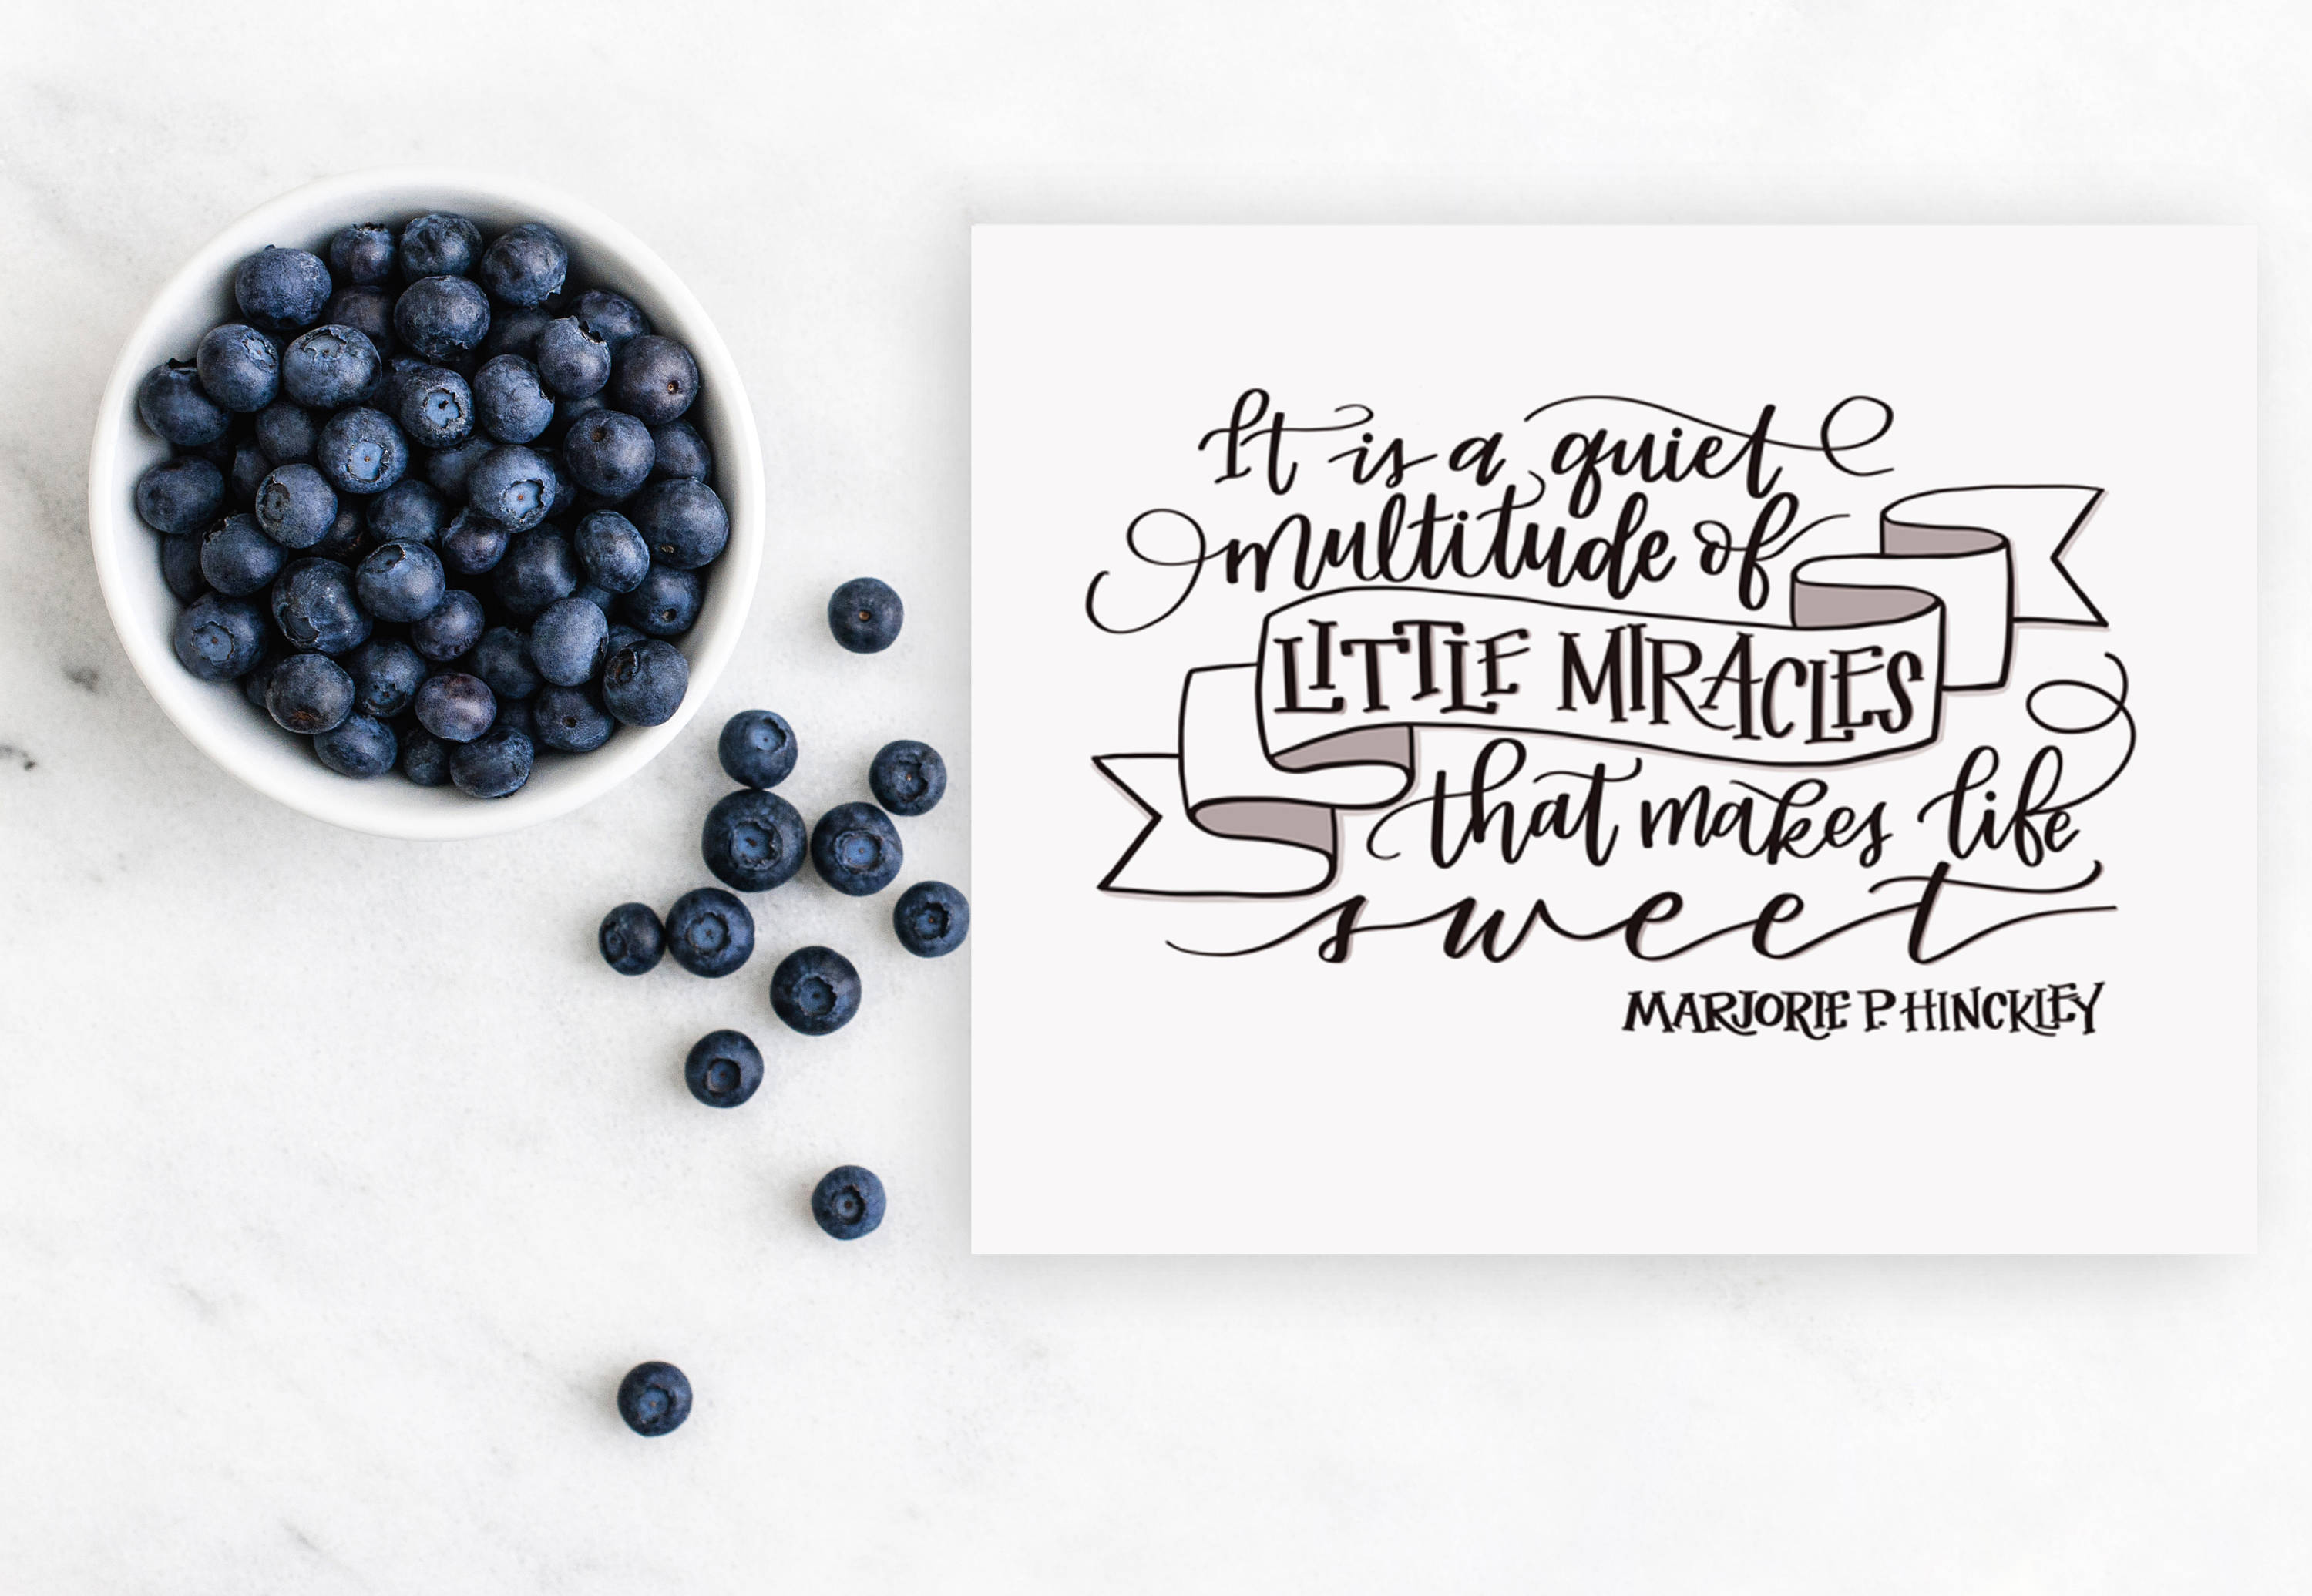 It is a quiet
multitude of
LITTLE MIRACLES
that makes life
sweet
MARJORIE P. HINCKLEY